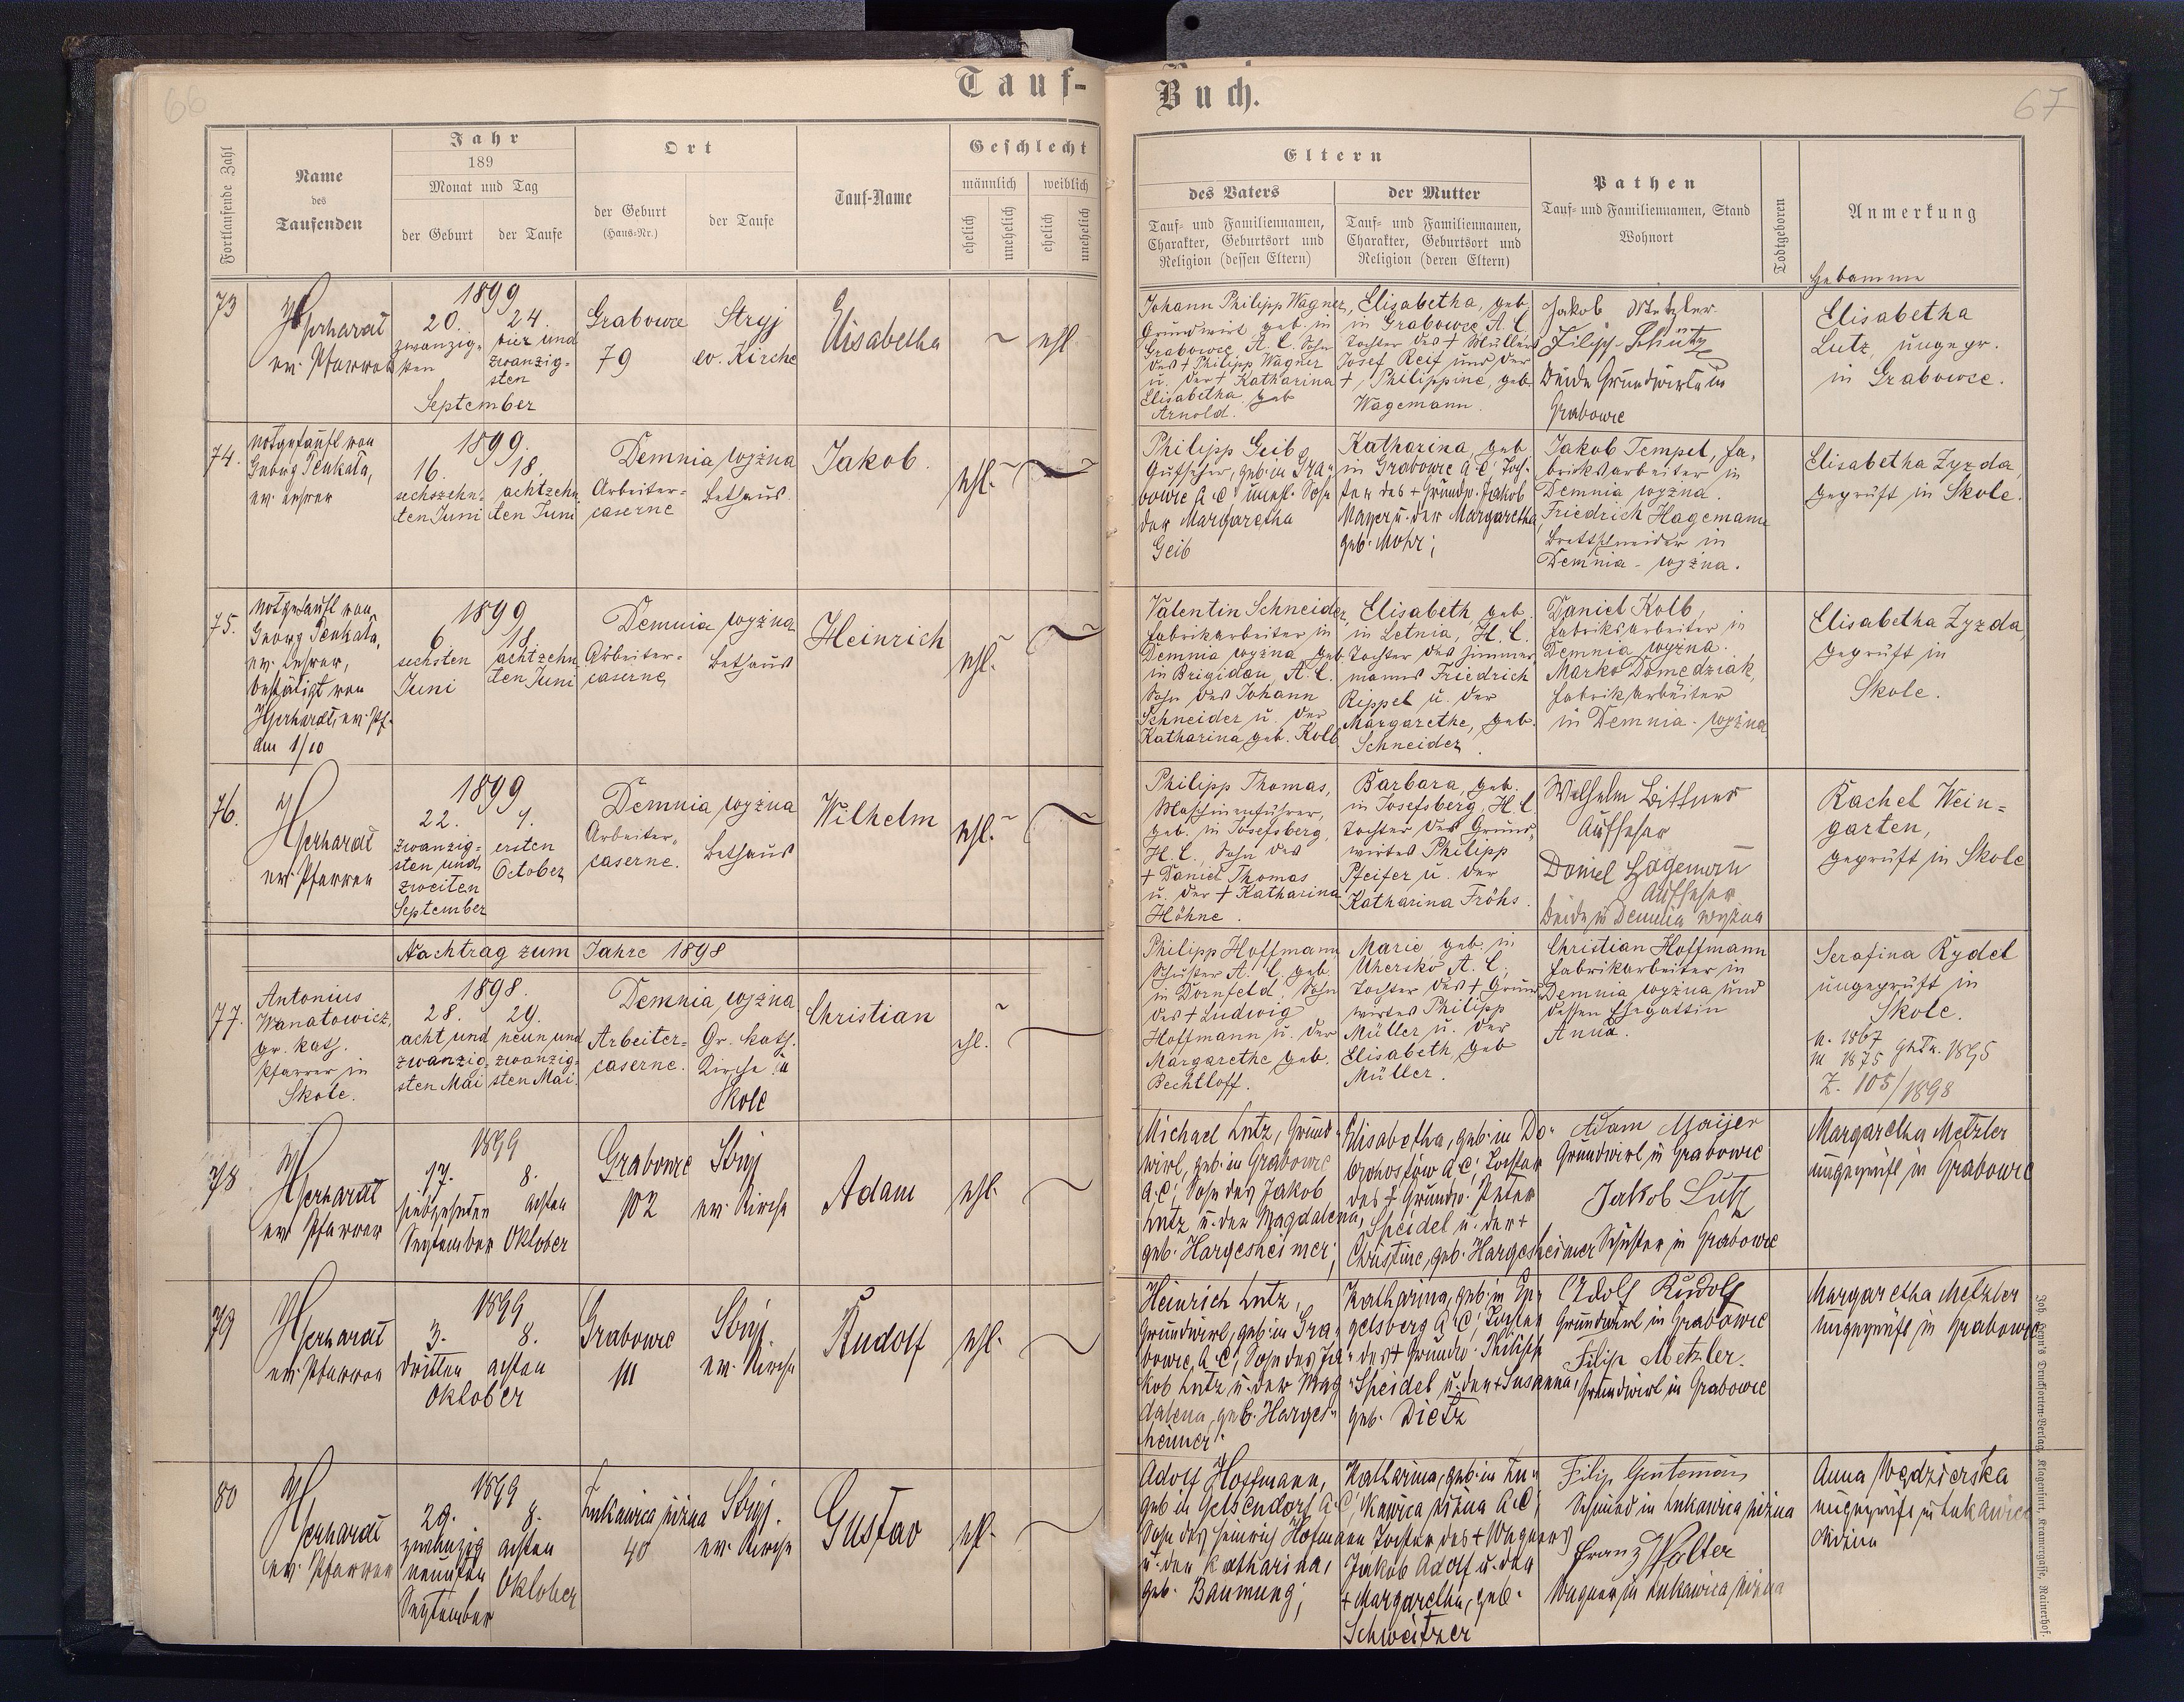 66
67
Tauf-
Buch.
Fortlaufende Zahl
Name
des
Taufenden
Jahr
189
Monat und Tag
der Geburt
der Taufe
Ort
der Geburt
(Haus-Nr.)
der Taufe
Tauf-Name
Geschlecht
männlich
weiblich
ehelich
unehelich
ehelich
unehelich
Eltern
des Vaters
Tauf- und Familiennamen,
Charakter, Geburtsort und
Religion (dessen Eltern)
der Mutter
Tauf- und Familiennamen,
Charakter, Geburtsort und
Religion (deren Eltern)
Pathen
Tauf- und Familiennamen, Stand
Wohnort
Todtgeboren
Anmerkung
Hebamme
73
ev. Pfarrer
1899
20. 24.
zwanzig-
sten
vier und
zwanzig-
sten
September
Grabowce
79
Stryj
ev. Kirche
Elisabetha
ehl
Johann Philipp Wagner,
Grundwirt geb. in
Grabowce, A. C. Sohn
des + Philipp Wagner
u. der + Katharina
Elisabetha geb
Arnold.
Elisabetha, geb.
in Grabowce, A. C.
Tochter des + Müllers
Josef Reif und der
+ Philippine, geb.
Wagemann.
Jakob Metzler
Filipp Schütz
Beide Grundwirte in
Grabowce
Elisabetha
Lutz, ungepr.
in Grabowce.
74.
notgetauft von
Georg Penkala,
ev. Lehrer
1899.
16. 18.
sechszehn-
ten Juni
achtzehn
ten Juni
Demnia wyżna
Arbeiter-
caserne
Bethaus.
Jakob.
ehl.
Philipp Geib,
Aufseher, geb. in Gra-
bowce A. C. unehl. Sohn
der Margaretha
Geib
Katharina, geb.
in Grabowce A. C. Toch-
ter des + Grundw. Jakob
Mayer u. der Margaretha,
geb. Mohr;
Jakob Tempel, Fa-
briksarbeiter in
Demnia wyżna.
Friedrich Hagemann
Brettschneider in
Demnia - wyżna.
Elisabetha Zyzda,
geprüft in Skole.
75.
notgetauft von
Georg Penkala,
ev. Lehrer,
bestätigt von
ev. Pf.
am 1/10
1899
6. 18.
sechsten
Juni
achtzehn
ten Juni
Demnia wyżna
Arbeiter-
caserne
Bethaus
Heinrich
ehl.
Valentin Schneider,
Fabrikarbeiter in
Demnia wyżna geb.
in Brigidau, A. C.
Sohn des Johann
Schneider u. der
Katharina geb. Kolb
Elisabeth geb.
in Letnia, H. C.
Tochter des Zimmer-
manns Friedrich
Rippel u. der
Margarethe, geb.
Schneider.
Daniel Kolb,
Fabriksarbeiter in
Demnia wyżna.
Marko Domedziak,
Fabrikarbeiter
in Demnia - wyżna
Elisabetha Zyzda,
geprüft in
Skole.
76.
ev. Pfarrer
1899
22. 1.
zwanzig-
sten und
zweiten
September
ersten
October
Demnia wyżna
Arbeiter-
caserne.
Bethaus
Wilhelm
ehl.
Philipp Thomas,
Maschinenführer,
geb. in Josefsberg,
H. C., Sohn des
+ Daniel Thomas
u. der + Katharina
Höhne.
Barbara, geb.
in Josefsberg, H. C.
Tochter des Grund-
wirtes Philipp
Pfeifer u. der
Katharina Fröhs.
Wilhelm Bittner
Aufseher
Daniel Hagemann
Aufseher
Beide in Demnia wyżna
Rachel Wein=
garten,
geprüft in Skole
Nachtrag zum Jahre 1898
77.
Antonius
Wanatowicz,
gr. kath.
Pfarrer in
Skole.
1898.
28. 29.
acht und
zwanzig-
sten Mai
neun und
zwanzig-
sten Mai.
Demnia wyżna
Arbeiter=
caserne.
Gr. kath.
Kirche in
Skole
Christian
ehl.
Philipp Hoffmann
Schuster A. C. geb.
in Dornfeld, Sohn
des + Ludwig
Hoffmann u. der
Margarethe geb.
Bechtloff.
Marie geb. in
Uhersko A. C.,
Tochter des + Grund-
wirtes Philipp
Müller u. der
Elisabeth, geb
Müller.
Christian Hoffmann
Fabrikarbeiter in
Demnia wyżna und
dessen Ehegattin
Anna.
Serafina Rydel
ungeprüft in
Skole.
1867
1875 1895
Z. 105/1898
78
ev. Pfarrer
1899
17. 8.
siebzehnten
September
achten
Oktober
Grabowce
102
Stryj
ev. Kirche
Adam
ehl.
Michael Lutz, Grund-
wirt, geb. in Grabowce
A. C., Sohn des Jakob
Lutz u. der Magdalena,
geb. Hargesheimer;
Elisabetha, geb. in Do-
brohostów A. C., Tochter
des + Grundw. Peter
Speidel u. der +
Christine, geb. Hargesheimer
Adam Maijer
Grundwirt in Grabowce
Jakob Lutz
Schuster in Grabowce
Margaretha Metzler
ungeprüft in Grabowce
79
ev. Pfarrer
1899
3. 8.
dritten achten
Oktober
Grabowce
111
Stryj.
ev. Kirche
Rudolf
ehl.
Heinrich Lutz,
Grundwirt, geb. in Gra-
bowce, A. C., Sohn des Ja-
kob Lutz u. der Mag-
dalena, geb. Harges-
heimer
Katharina, geb. in Ug-
gelsberg A. C., Tochter
des + Grundw. Philipp
Speidel u. der + Susanna,
geb. Dietz
Adolf Rudolf
Grundwirt in Grabowce
Filip Metzler.
Grundwirt in Grabowce
Margaretha Metzler
ungeprüft in Grabowce
80
ev. Pfarrer
1899
29. 8.
zwanzig
neunten
September
achten
Oktober
Lukawica niżna
40
Stryj.
ev. Kirche
Gustav
ehl.
Adolf Hoffmann,
geb. in Gelsendorf A. C.,
Sohn des Heinrich Hofmann
u. der Katharina,
geb. Baumung;
Katharina, geb. in Lu-
kawica niżna A. C.,
Tochter des + Wagners
Jakob Adolf u. der
+ Margaretha, geb.
Schweitzer
Filip
Schmied in Lukawica niżna
Franz Wolter
Wagner in Lukawica niżna
Anna Wędzierska
ungeprüft in Lukawica
niżna
Joh. Leon's Drucksorten-Verlag, Klagenfurt, Kramergasse, Rainerhof.